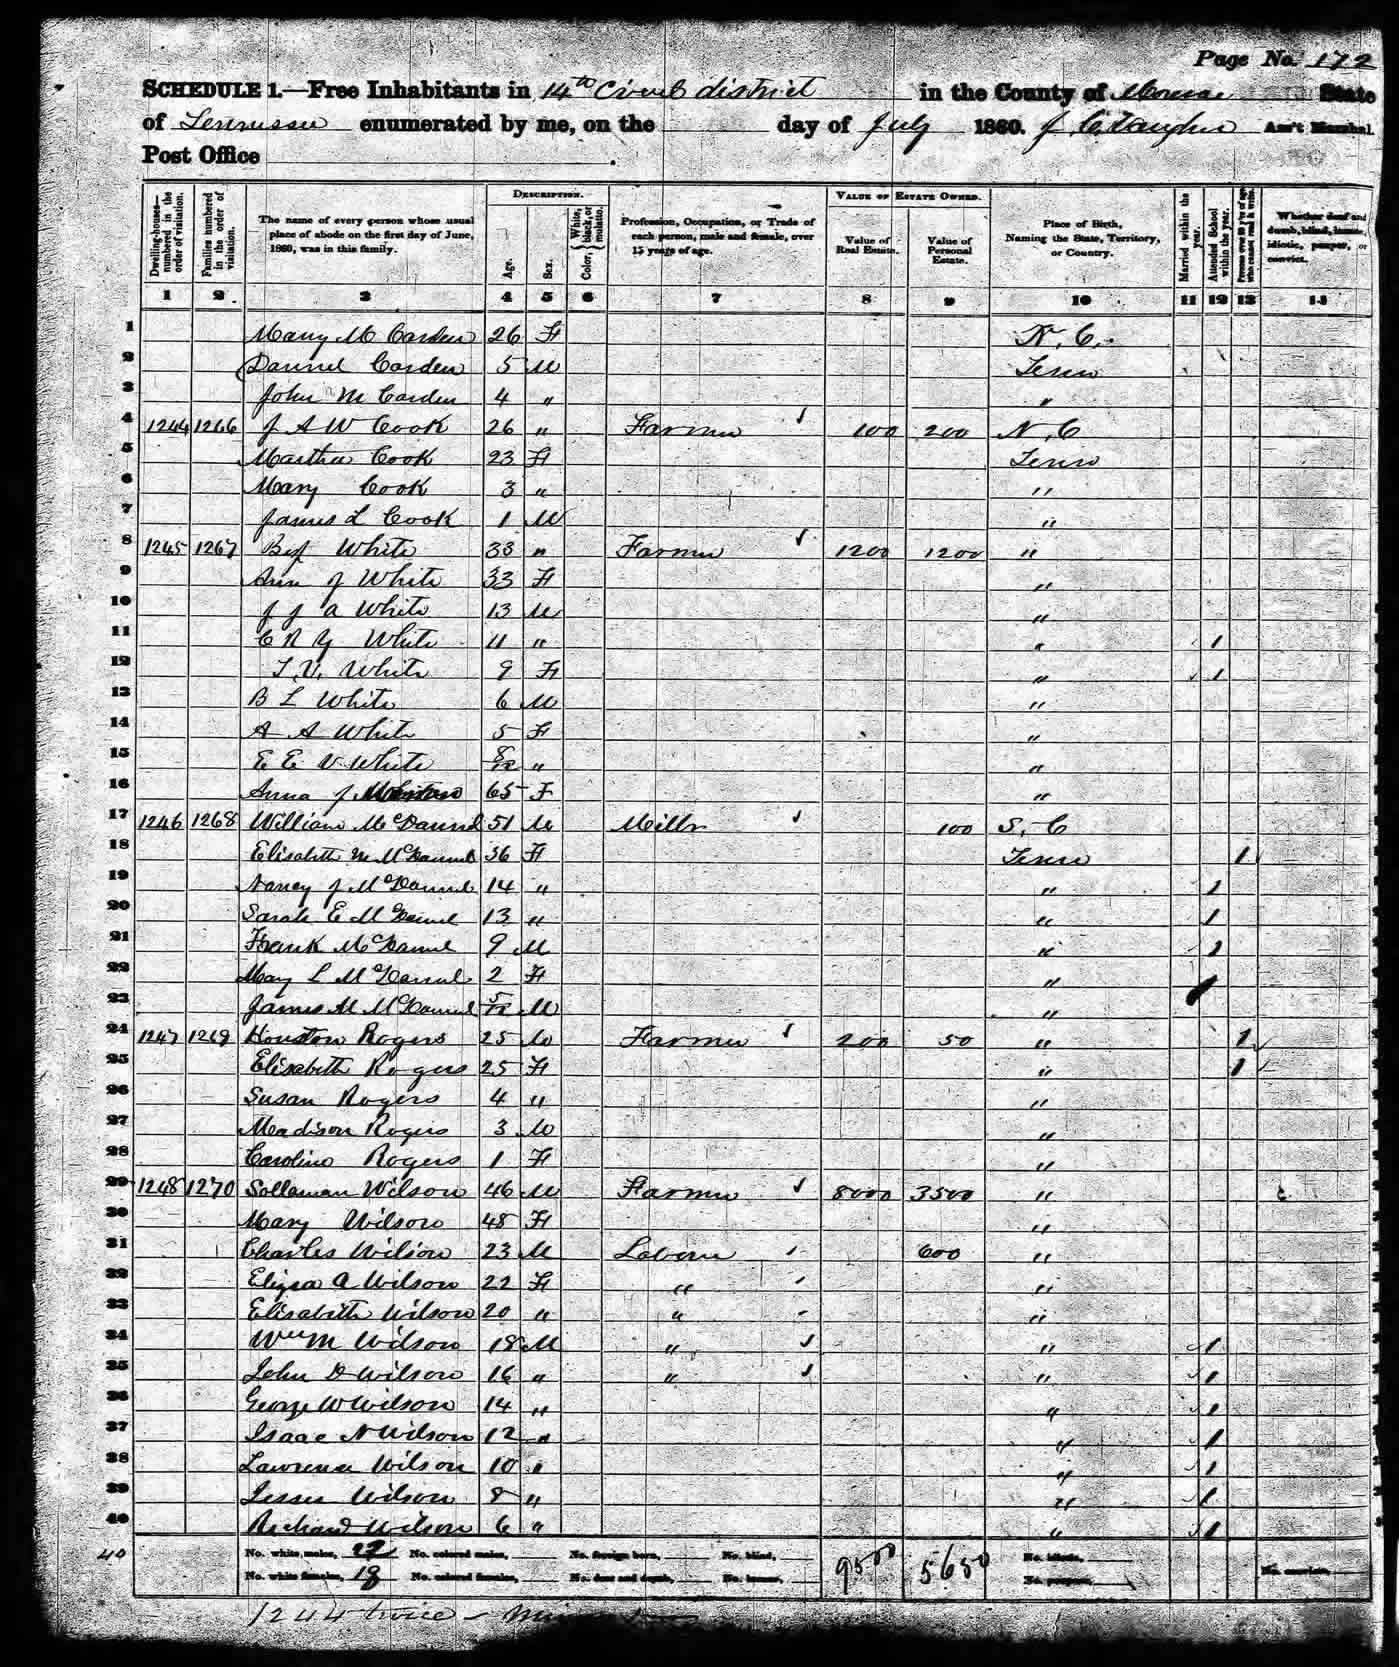 Page No. 172
SCHEDULE 1.—Free Inhabitants in 14th Civil district in the County of Monroe State
of Tennessee enumerated by me, on the day of July 1860. J C Vaughn Ass't Marshal
Post Office .
Dwelling-houses—numbered in the order of visitation. Families numbered in the order of visitation. The name of every person whose usual place of abode on the first day of June, 1860, was in this family. DESCRIPTION. Age. Sex. Color, {White, black, or mulatto. Profession, Occupation, or Trade of each person, male and female, over 15 years of age. VALUE OF ESTATE OWNED. Value of Real Estate. Value of Personal Estate. Place of Birth, Naming the State, Territory, or Country. Married within the year. Attended School within the year. Persons over 20 y'rs of age who cannot read & write. Whether deaf and dumb, blind, insane, idiotic, pauper, or convict.
1 2 3 4 5 6 7 8 9 10 11 12 13 14
1 Mary M Carden 26 F N. C.
2 Danniel Carden 5 M Tenn
3 John M Carden 4 " "
4 1244 1266 J A W Cook 26 " Farmer 100 200 N. C
5 Martha Cook 23 F Tenn
6 Mary Cook 3 " "
7 James L Cook 1 M "
8 1245 1267 Benj White 33 " Farmer 1200 1200 "
9 Ann J White 33 F "
10 J J A White 13 M "
11 C N Y White 11 " " 1
12 T. V. White 9 F " 1
13 B L White 6 M "
14 A A White 5 F "
15 E E V White 8/12 " "
16 Anna J 65 F "
17 1246 1268 William McDannel 51 M Miller 100 S. C
18 Elisabeth M McDannel 36 F Tenn 1
19 Nancy J McDannel 14 " " 1
20 Sarah E McDannel 13 " " 1
21 Frank McDannel 9 M " 1
22 Mary L McDannel 2 F "
23 James M McDannel 5/12 M "
24 1247 1269 Houston Rogers 25 M Farmer 200 50 " 1
25 Elisabeth Rogers 25 F " 1
26 Susan Rogers 4 " "
27 Madison Rogers 3 M "
28 Caroline Rogers 1 F "
29 1248 1270 Sollaman Wilson 46 M Farmer 8000 3500 "
30 Mary Wilson 48 F "
31 Charles Wilson 23 M Laborer 600 "
32 Eliza A Wilson 22 F " "
33 Elisabeth Wilson 20 " " "
34 Wm M Wilson 18 M " " 1
35 John D Wilson 16 " " " 1
36 George W Wilson 14 " " 1
37 Isaac N Wilson 12 " " 1
38 Lawrence Wilson 10 " " 1
39 Jesse Wilson 8 " " 1
40 Richard Wilson 6 " " 1
40 No. white males, 22 No. colored males, No. foreign born, No. blind, 9500 5650 No. idiotic,
No. white females, 18 No. colored females, No. deaf and dumb, No. insane, No. paupers, No. convicts,
1244 twice -